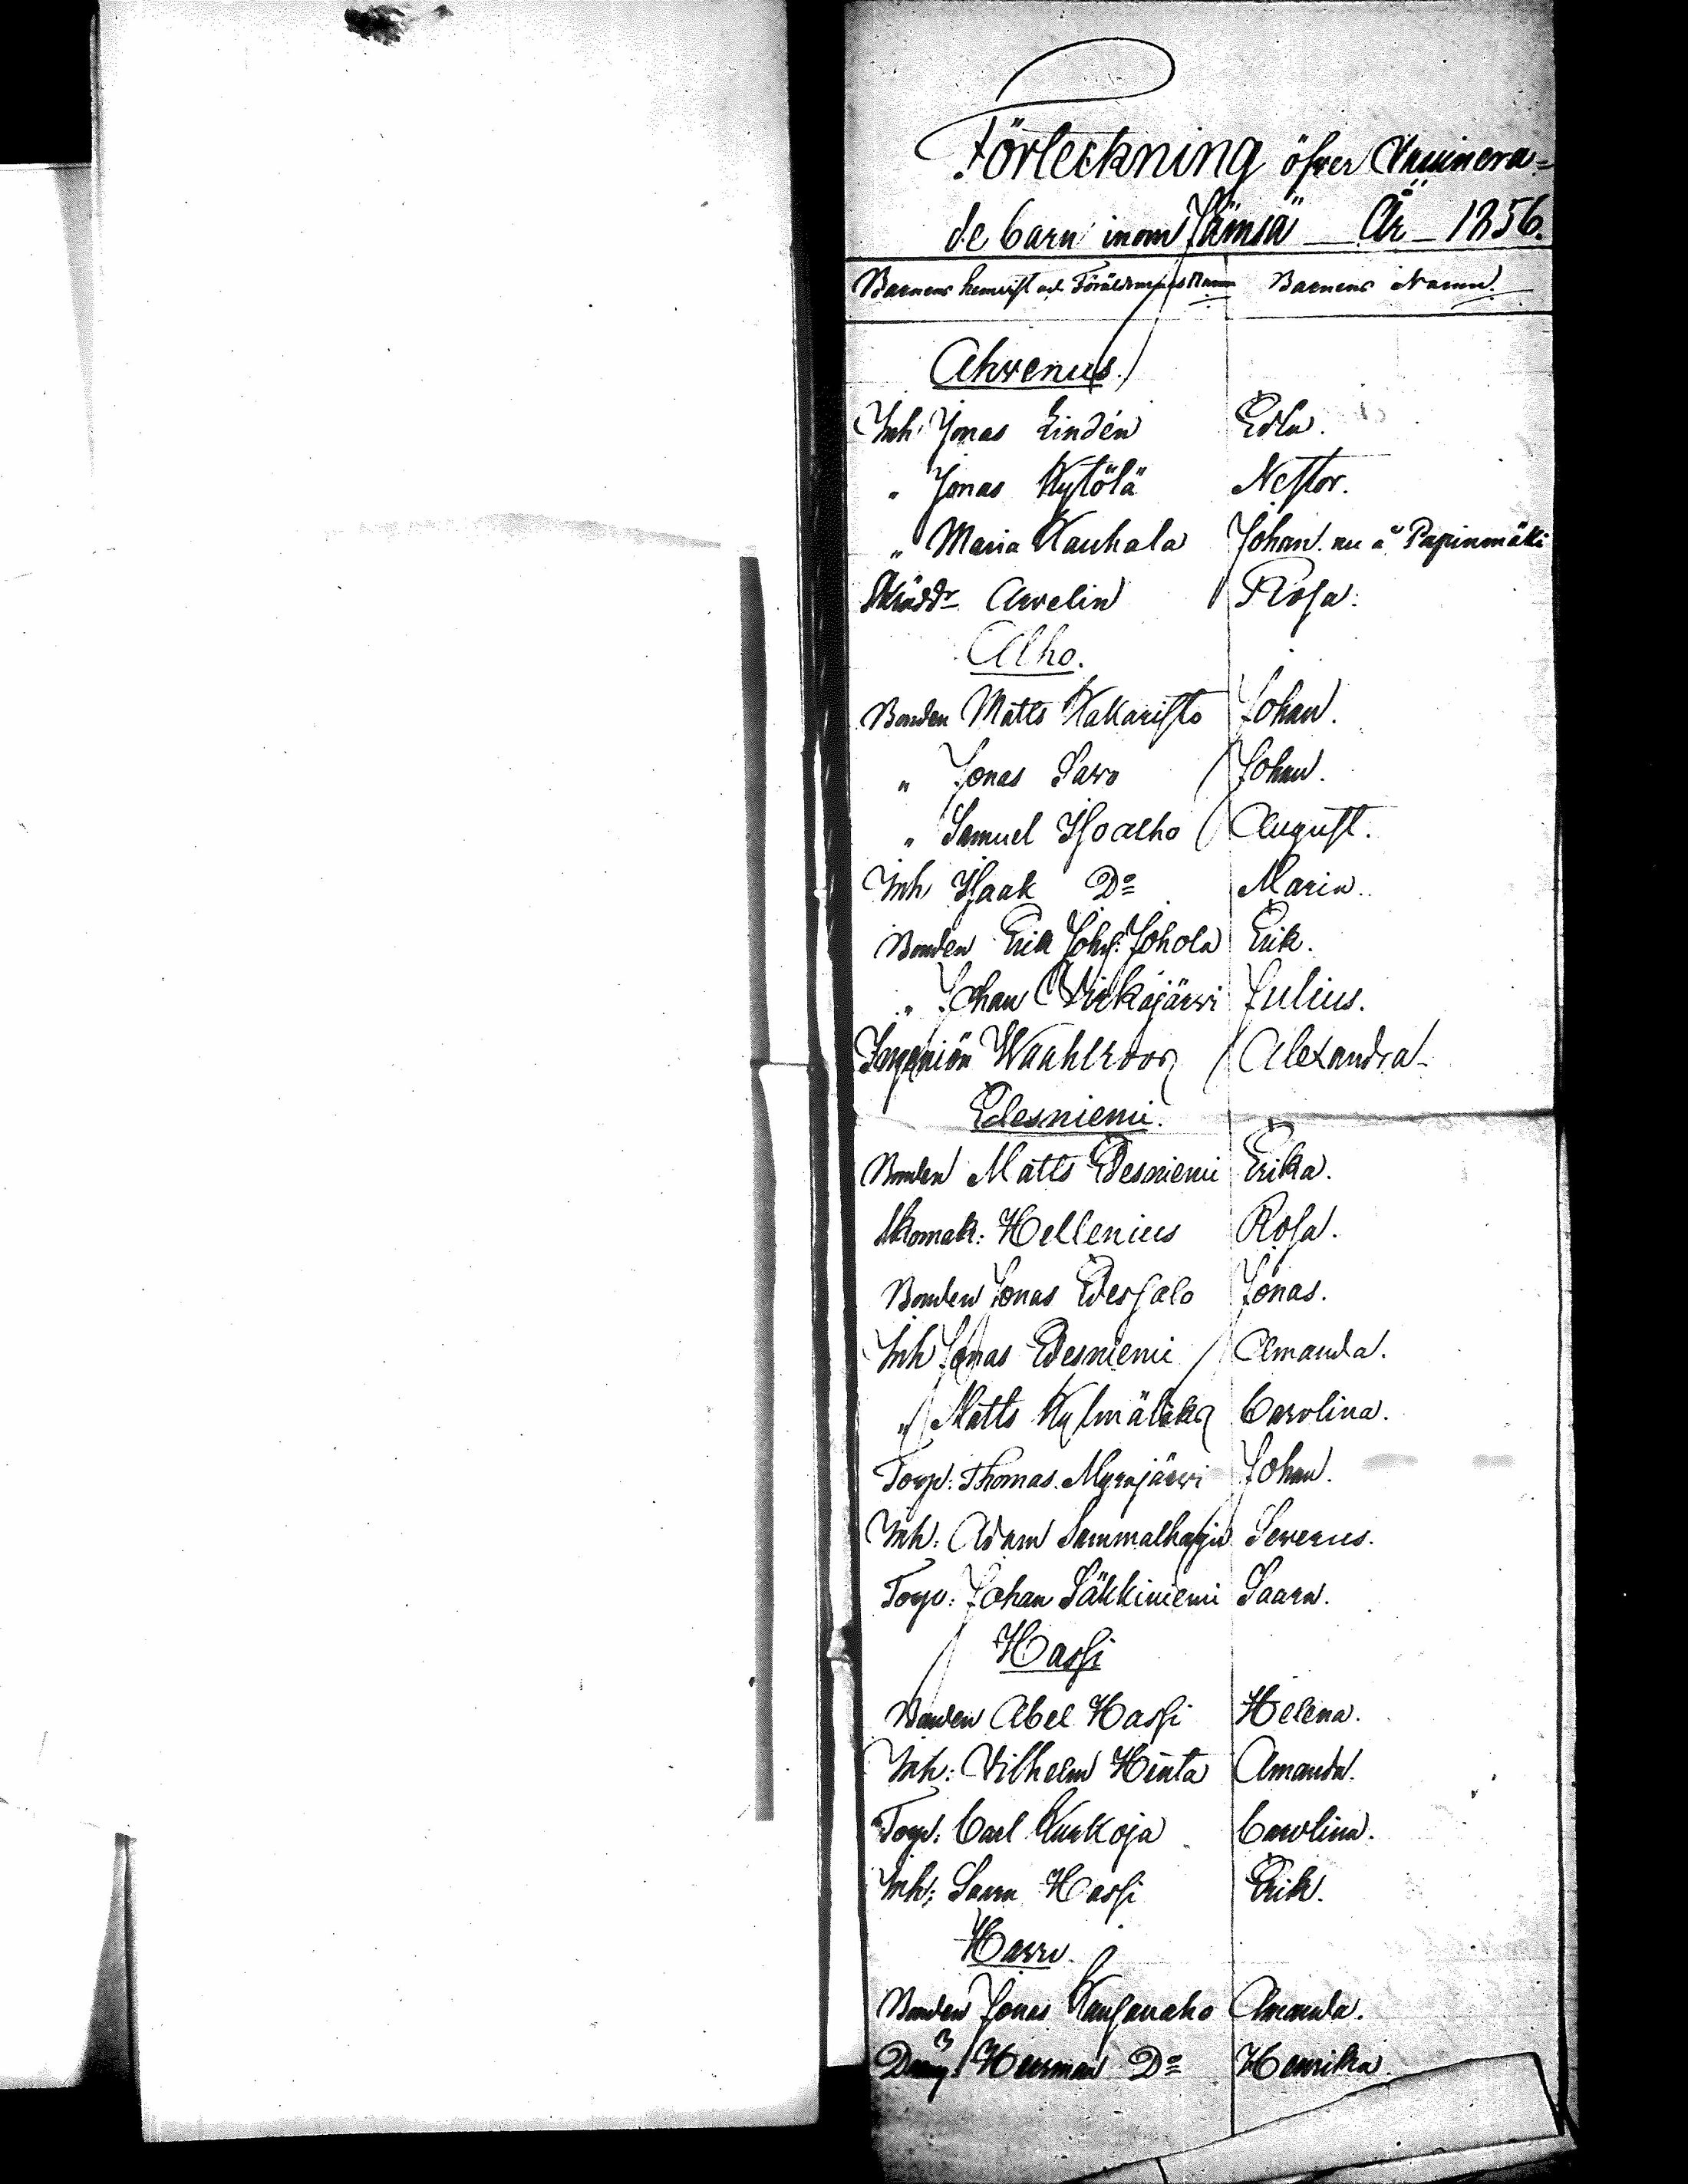 Förteckning öfver Vaccinera=
de barn inom Jämsä År 1856.
Barnens hemvist och Föräldrarnas Namn Barnens Namn.
Ahvenus.
Inh. Jonas Lindén Edla.
" Jonas Kytölä Nestor.
" Maria Kauhala Johan. nu å Papinmäki
Skrädd: Arvelin Rosa.
Alho.
Bonden Matts Kakaristo Johan.
" Jonas Savo Johan.
" Samuel Isoalho August.
Inh Isaak Do Maria.
Bonden Erik Johola Erik.
" Johan Virkajärvi Julius.
Waahlroos Alexandra
Edesniemi.
Bonden Matts Edesniemi Erika.
Skomak: Hellenius Rosa.
Bonden Jonas Edessalo Jonas.
Inh Jonas Edesniemi Amanda.
" Matts Kylmäläka Carolina.
Torp: Thomas Myräjärvi Johan.
Inh: Adam Sammalharju Severus.
Torp: Johan Säkkiniemi Saara.
Hassi
Bonden Abel Hassi Helena.
Inh: Vilhelm Hinta Amanda.
Torp: Carl Kurkoja Carolina.
Inh: Saara Hassi Erik.
Harru.
Bonden Jonas Kansanaho Amanda.
Herman Do Henrika.